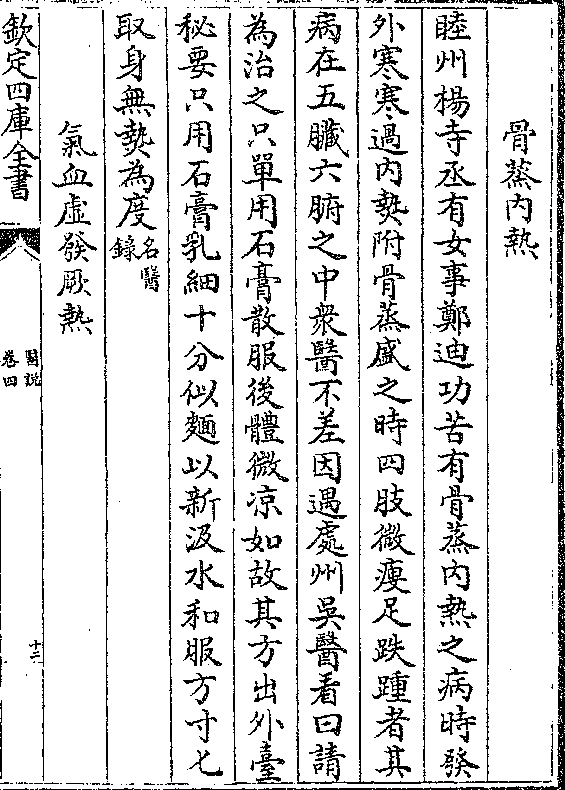 骨蒸内熱
睦州楊寺丞有女事鄭迪功苦有骨蒸内熱之病時發
外寒寒過内熱附骨蒸盛之時四肢微瘦足趺踵者其
病在五臟六腑之中衆醫不差因遇處州吳醫看曰請
為治之只單用石膏散服後體微凉如故其方出外臺
秘要只用石膏乳細十分似麵以新汲水和服方寸匕
取身無熱為度名醫
錄
氣血虛發厥熱
欽定四庫全書
醫說
卷四
十三